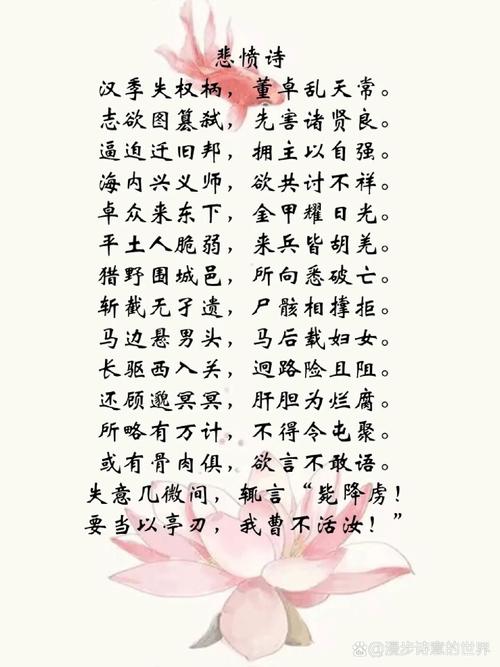 悲愤诗
汉季失权柄，董卓乱天常。
志欲图篡弑，先害诸贤良。
逼迫迁旧邦，拥主以自强。
海内兴义师，欲共讨不祥。
卓众来东下，金甲耀日光。
平土人脆弱，来兵皆胡羌。
猎野围城邑，所向悉破亡。
斩截无孑遗，尸骸相撑拒。
马边悬男头，马后载妇女。
长驱西入关，迥路险且阻。
还顾邈冥冥，肝胆为烂腐。
所略有万计，不得令屯聚。
或有骨肉俱，欲言不敢语。
失意几微间，辄言“毙降虏！
要当以亭刃，我曹不活汝！”
@漫步诗意的世界